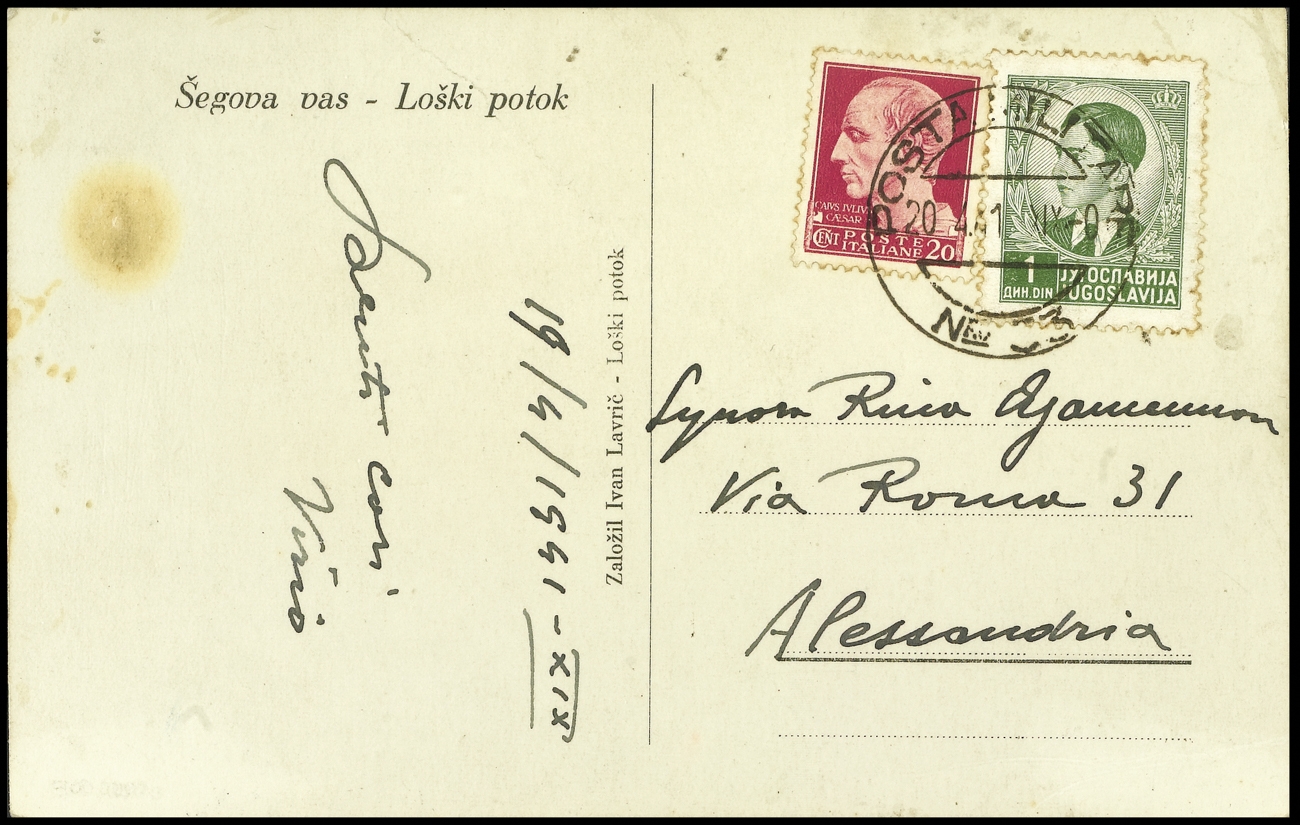 Šegova vas - Loški potok
Saluti cari
19/4/1941-XIX
Založil Ivan Lavrič - Loški potok
CAIVS IVLIVS
CÆSAR
CENT POSTE
ITALIANE 20
1 ЈУГОСЛАВИЈА
ДИН. DIN JUGOSLAVIJA
POSTA MILITARE
20 4.41 XIX
Signora Rina Agamennon
Via Roma 31
Alessandria